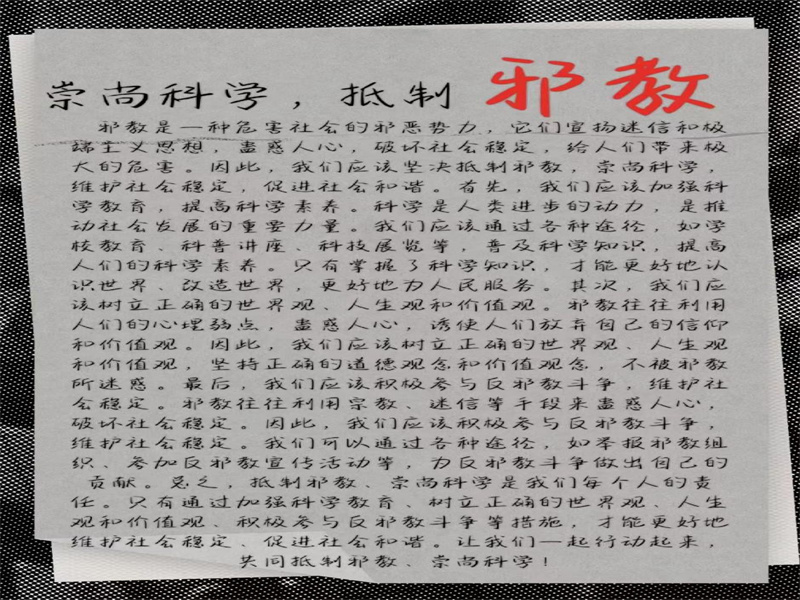 崇尚科学，抵制 邪教
邪教是一种危害社会的邪恶势力，它们宣扬迷信和极
端主义思想，蛊惑人心，破坏社会稳定，给人们带来极
大的危害。因此，我们应该坚决抵制邪教，崇尚科学，
维护社会稳定，促进社会和谐。首先，我们应该加强科
学教育，提高科学素养。科学是人类进步的动力，是推
动社会发展的重要力量。我们应该通过各种途径，如学
校教育、科普讲座、科技展览等，普及科学知识，提高
人们的科学素养。只有掌握了科学知识，才能更好地认
识世界、改造世界，更好地为人民服务。其次，我们应
该树立正确的世界观、人生观和价值观。邪教往往利用
人们的心理弱点，蛊惑人心，诱使人们放弃自己的信仰
和价值观。因此，我们应该树立正确的世界观、人生观
和价值观，坚持正确的道德观念和价值观念，不被邪教
所迷惑。最后，我们应该积极参与反邪教斗争，维护社
会稳定。邪教往往利用宗教、迷信等手段来蛊惑人心，
破坏社会稳定。因此，我们应该积极参与反邪教斗争，
维护社会稳定。我们可以通过各种途径，如举报邪教组
织、参加反邪教宣传活动等，为反邪教斗争做出自己的
贡献。总之，抵制邪教、崇尚科学是我们每个人的责
任。只有通过加强科学教育、树立正确的世界观、人生
观和价值观、积极参与反邪教斗争等措施，才能更好地
维护社会稳定、促进社会和谐。让我们一起行动起来，
共同抵制邪教、崇尚科学！